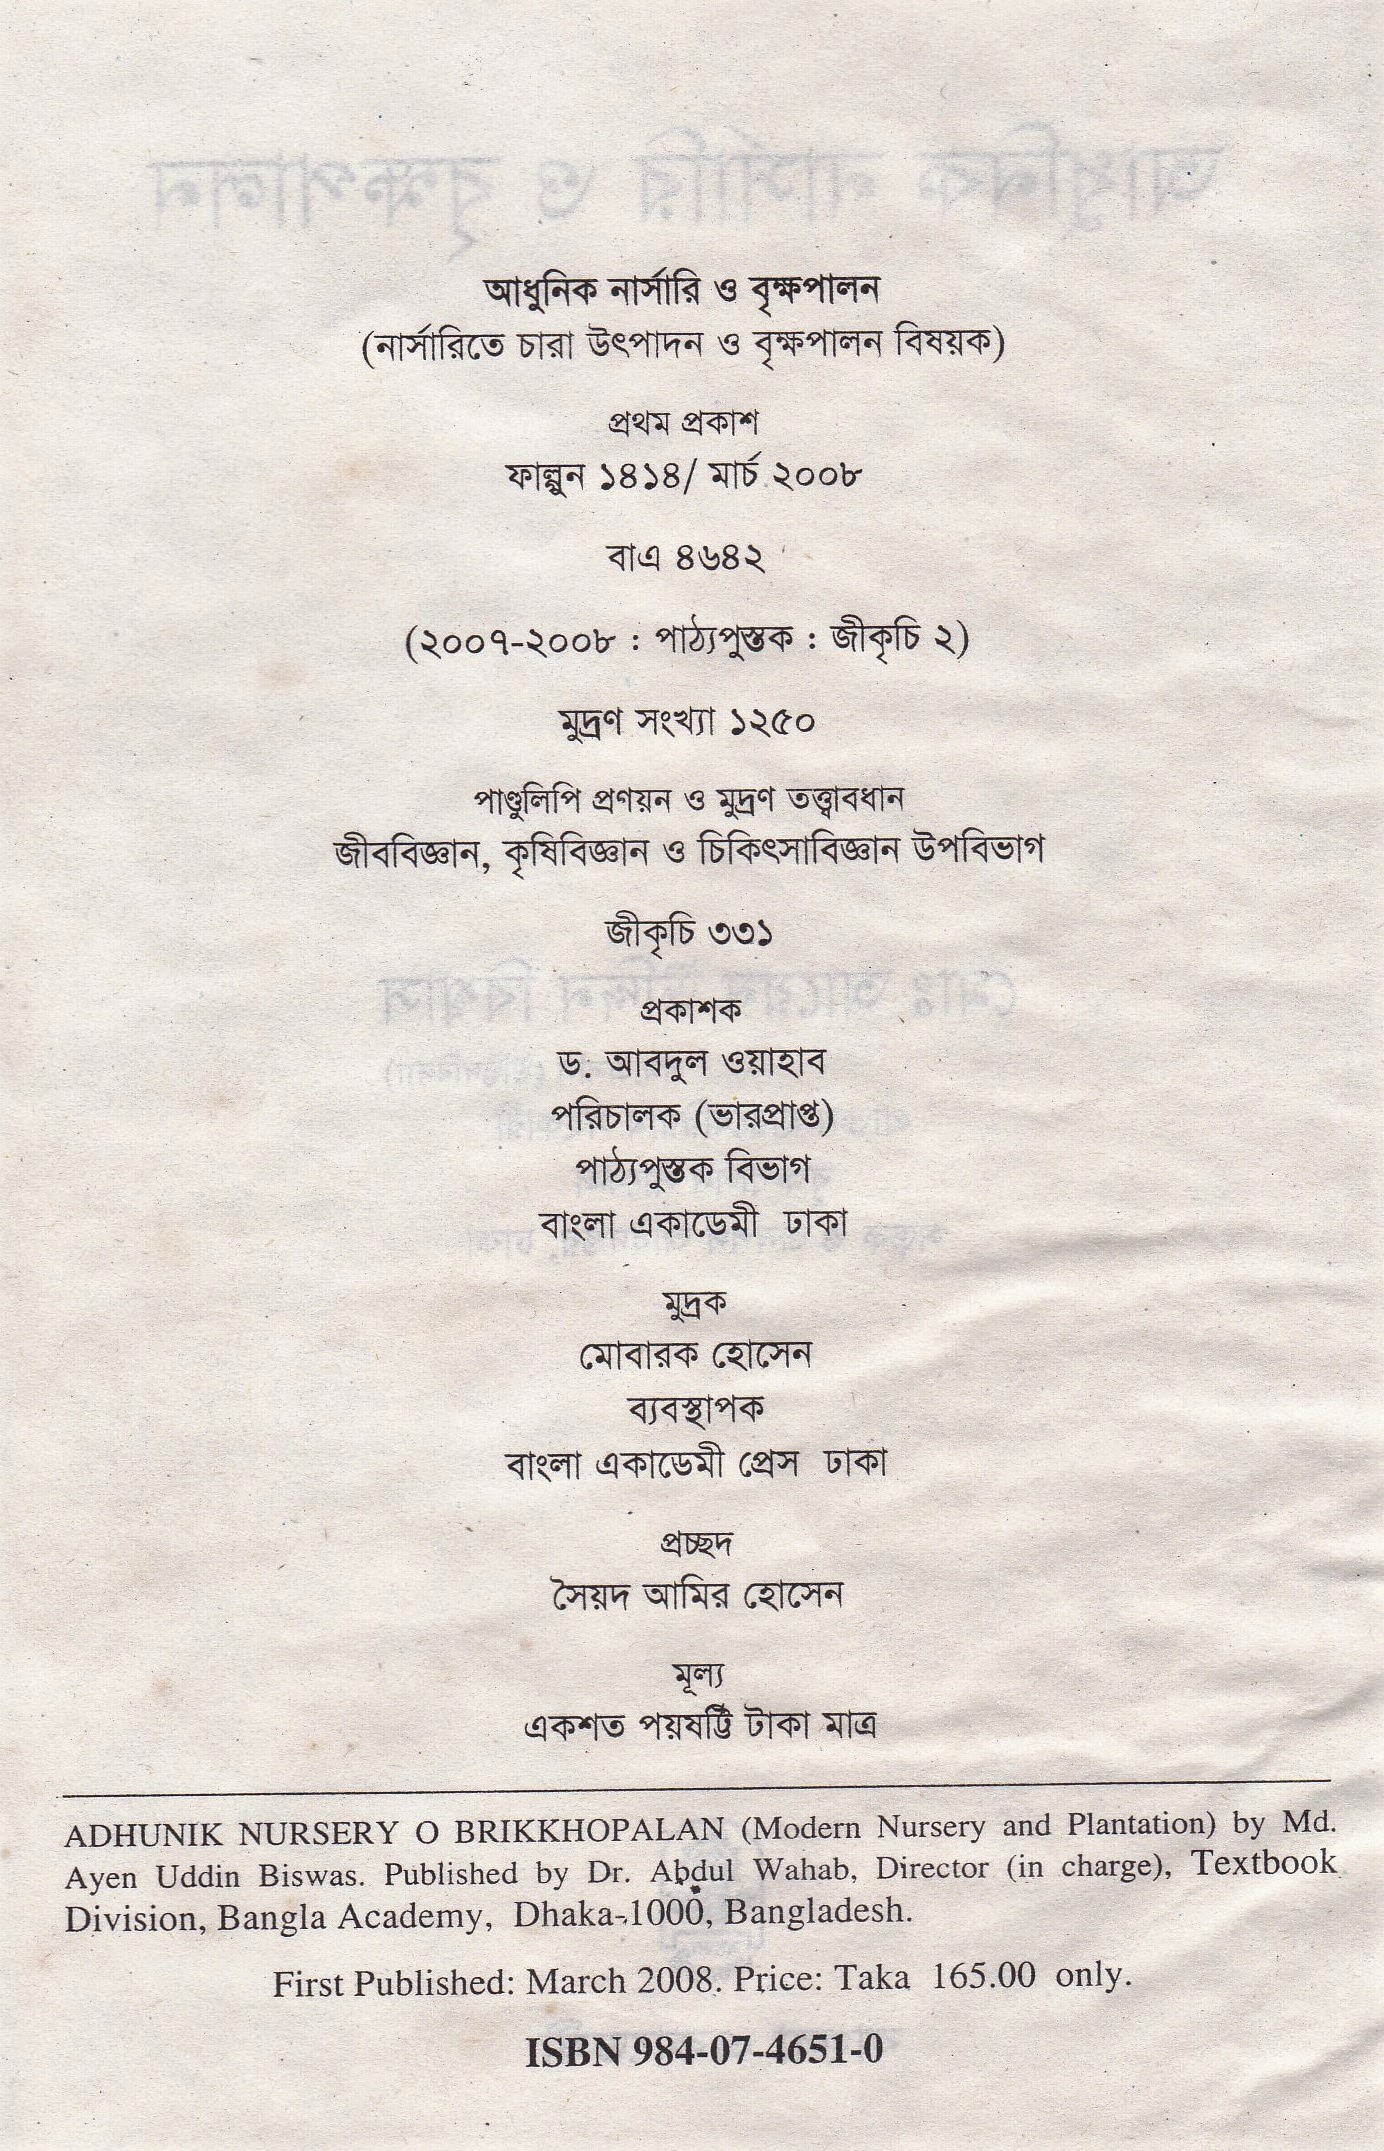 আধুনিক নার্সারি ও বৃক্ষপালন
(নার্সারিতে চারা উৎপাদন ও বৃক্ষপালন বিষয়ক)
প্রথম প্রকাশ
ফাল্গুন ১৪১৪/ মার্চ ২০০৮
বাএ ৪৬৪২
(২০০৭-২০০৮ : পাঠ্যপুস্তক : জীকৃচি ২)
মুদ্রণ সংখ্যা ১২৫০
পাণ্ডুলিপি প্রণয়ন ও মুদ্রণ তত্ত্বাবধান
জীববিজ্ঞান, কৃষিবিজ্ঞান ও চিকিৎসাবিজ্ঞান উপবিভাগ
জীকৃচি ৩৩১
প্রকাশক
ড. আবদুল ওয়াহাব
পরিচালক (ভারপ্রাপ্ত)
পাঠ্যপুস্তক বিভাগ
বাংলা একাডেমী ঢাকা
মুদ্রক
মোবারক হোসেন
ব্যবস্থাপক
বাংলা একাডেমী প্রেস ঢাকা
প্রচ্ছদ
সৈয়দ আমির হোসেন
মূল্য
একশত পয়ষট্টি টাকা মাত্র
ADHUNIK NURSERY O BRIKKHOPALAN (Modern Nursery and Plantation) by Md.
Ayen Uddin Biswas. Published by Dr. Abdul Wahab, Director (in charge), Textbook
Division, Bangla Academy, Dhaka-1000, Bangladesh.
First Published: March 2008. Price: Taka 165.00 only.
ISBN 984-07-4651-0